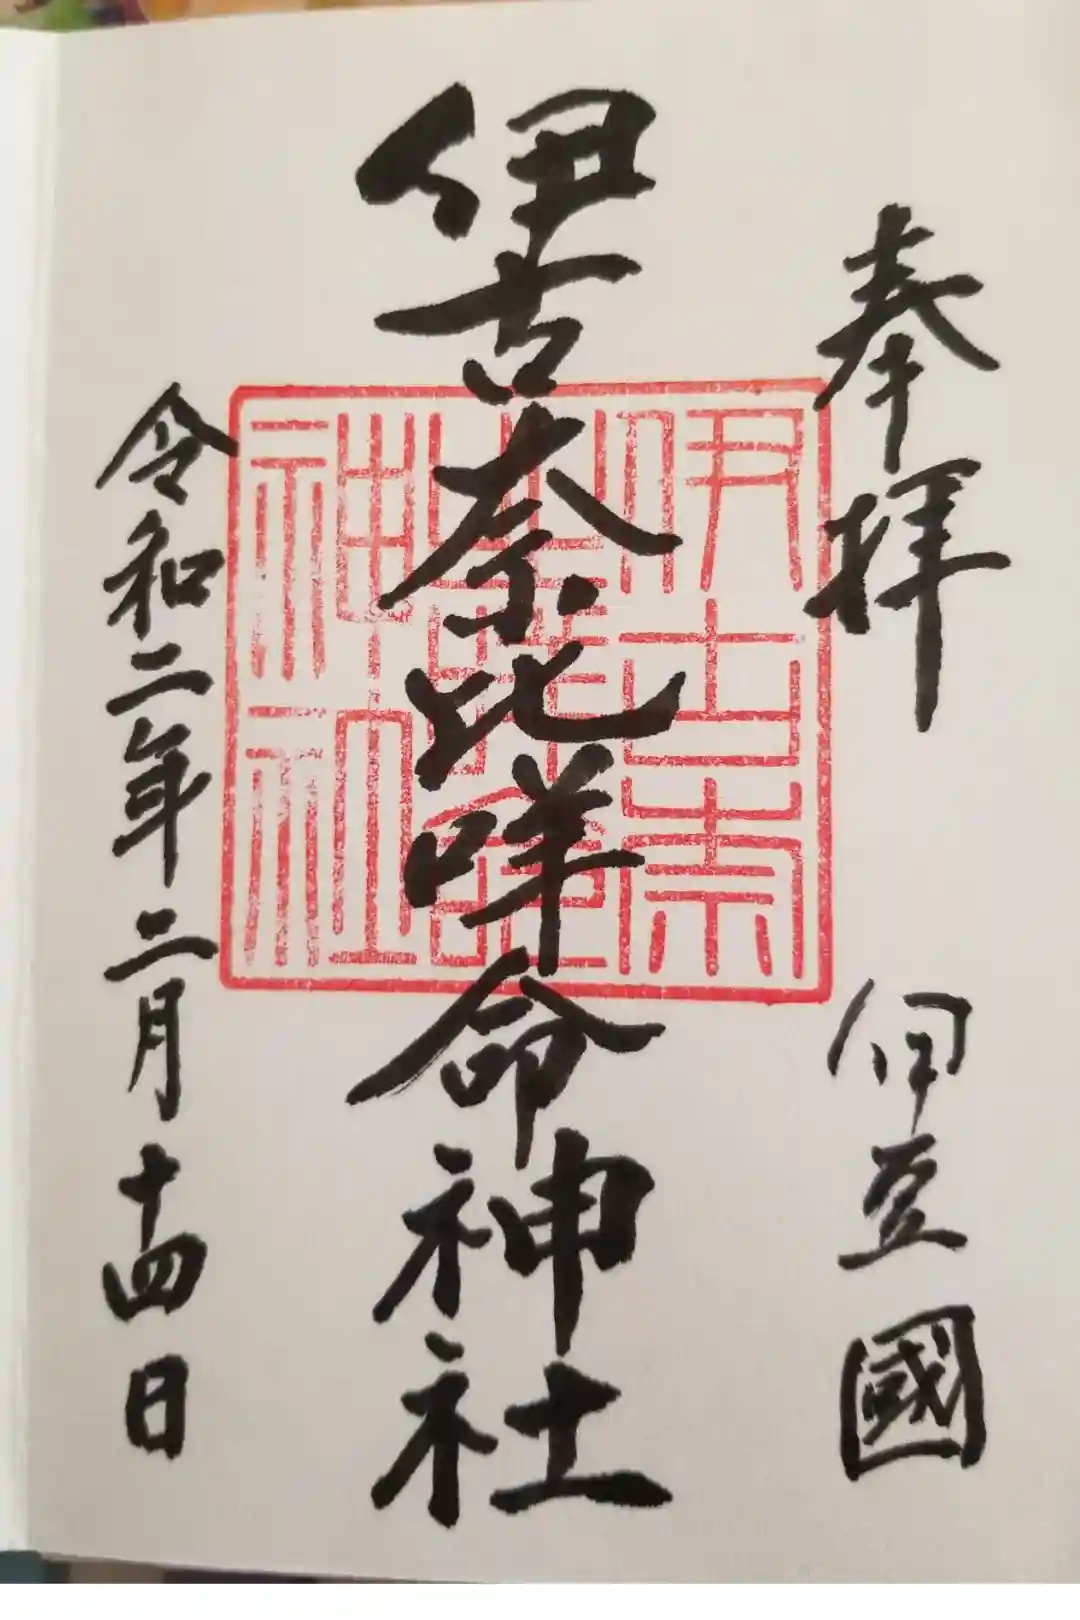 奉拝
伊豆國
伊古奈比咩命神社
伊古奈
比咩命
神社
令和二年二月十四日